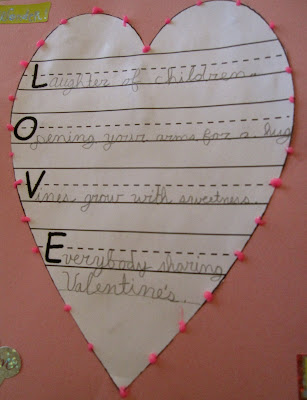 Laughter of children.
Opening your arms for a hug
Vines grow with sweetness.
Everybody sharing
Valentine's.